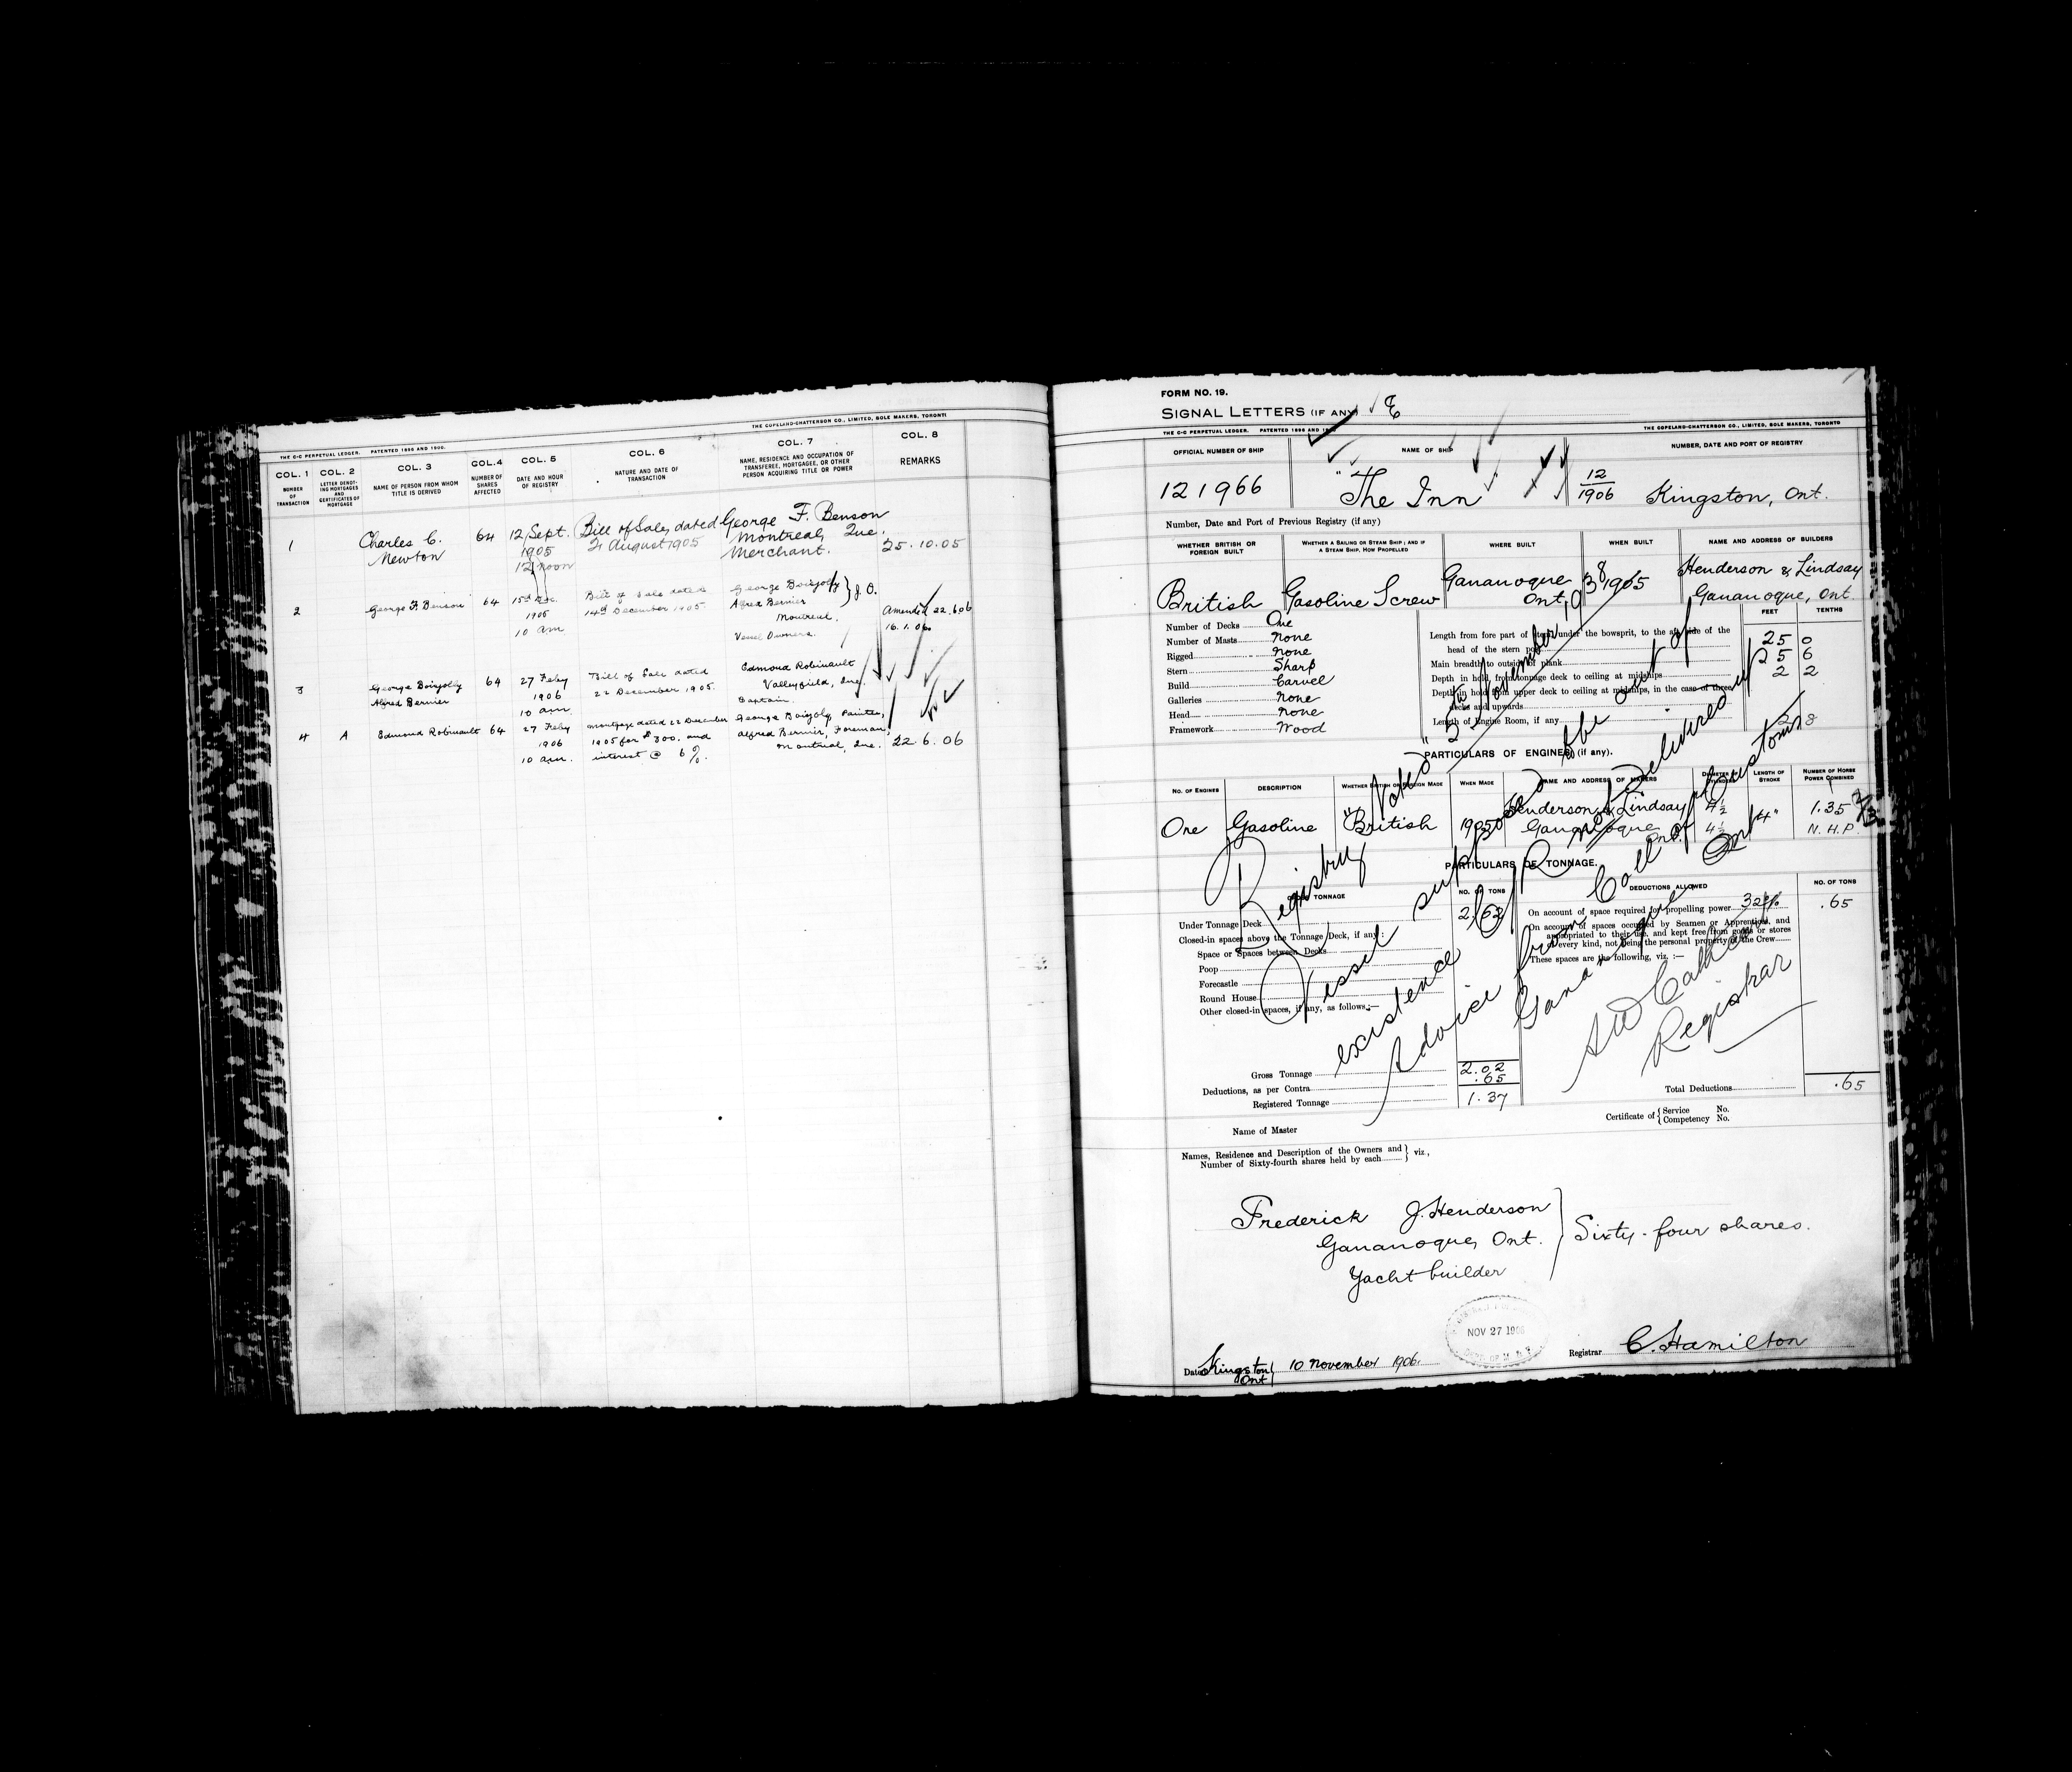 THE C-C PERPETUAL LEDGER. PATENTED 1896 AND 1900.
THE COPELAND-CHATTERSON CO., LIMITED, SOLE MAKERS, TORONTO
COL. 1 COL. 2 COL. 3 COL. 4 COL. 5 COL. 6 COL. 7 COL. 8
NUMBER OF TRANSACTION
LETTER DENOTING MORTGAGES AND CERTIFICATES OF MORTGAGE
NAME OF PERSON FROM WHOM TITLE IS DERIVED
NUMBER OF SHARES AFFECTED
DATE AND HOUR OF REGISTRY
NATURE AND DATE OF TRANSACTION
NAME, RESIDENCE AND OCCUPATION OF TRANSFEREE, MORTGAGEE, OR OTHER PERSON ACQUIRING TITLE OR POWER
REMARKS
1 Charles C. 64 12 Sept. Bill of Sale, dated George F. Benson
Newton 1905 21 August 1905 Montreal, Que.
12 noon Merchant. 25.10.05
2 George F. Benson 64 15th Dec. Bill of Sale dated George Boisjoly } J.O.
1905 14th December 1905. Alfred Bernier
10 am Montreal, Amended 22.6.06
Vessel Owners. 16.1.06
3 George Boisjoly 64 27 Feby Bill of Sale dated Edmond Robinault
Alfred Bernier 1906 22 December 1905. Valleyfield, Que.
10 am. Captain.
4 A Edmond Robinault 64 27 Feby mortgage dated 22 December George Boisjoly, Painter,
1906 1905 for $300. and Alfred Bernier, Foreman,
10 am. interest @ 6%. Montreal, Que. 22.6.06
FORM NO. 19.
SIGNAL LETTERS (IF ANY)
THE C-C PERPETUAL LEDGER. PATENTED 1896 AND 19
THE COPELAND-CHATTERSON CO., LIMITED, SOLE MAKERS, TORONTO
OFFICIAL NUMBER OF SHIP NAME OF SHIP NUMBER, DATE AND PORT OF REGISTRY
121966 "The Inn" 12/1906 Kingston, Ont.
Number, Date and Port of Previous Registry (if any)
WHETHER BRITISH OR FOREIGN BUILT
WHETHER A SAILING OR STEAM SHIP; AND IF A STEAM SHIP, HOW PROPELLED
WHERE BUILT
WHEN BUILT
NAME AND ADDRESS OF BUILDERS
British Gasoline Screw Gananoque Ont. 1905 Henderson & Lindsay
Gananoque, Ont.
FEET TENTHS
Number of Decks One
Number of Masts none
Rigged none
Stern Sharp
Build Carvel
Galleries none
Head none
Framework Wood
Length from fore part of stem, under the bowsprit, to the aft side of the head of the stern post 25 0
Main breadth to outside of plank 5 6
Depth in hold from tonnage deck to ceiling at midships 2 2
Depth in hold from upper deck to ceiling at midships, in the case of three decks and upwards
Length of Engine Room, if any 2 8
PARTICULARS OF ENGINES (if any).
NO. OF ENGINES DESCRIPTION WHETHER BRITISH OR FOREIGN MADE WHEN MADE NAME AND ADDRESS OF MAKERS DIAMETER OF CYLINDERS LENGTH OF STROKE NUMBER OF HORSE POWER COMBINED
One Gasoline British 1905 Henderson & Lindsay 4½ 4" 1.35
Gananoque Ont. 4½ N.H.P.
PARTICULARS OF TONNAGE.
GROSS TONNAGE NO. OF TONS DEDUCTIONS ALLOWED NO. OF TONS
Under Tonnage Deck 2.02
Closed-in spaces above the Tonnage Deck, if any:
Space or Spaces between Decks
Poop
Forecastle
Round House
Other closed-in spaces, if any, as follows:—
On account of space required for propelling power 32% .65
On account of spaces occupied by Seamen or Apprentices, and appropriated to their use, and kept free from goods or stores of every kind, not being the personal property of the Crew
These spaces are the following, viz.:—
Gross Tonnage 2.02
Deductions, as per Contra .65
Registered Tonnage 1.37
Total Deductions .65
Registry "Noted" November
Vessel supposed to be out of
existence C/R not delivered up
Advice from Coll of Customs
Gananoque Ont
Registrar
Name of Master
Certificate of { Service No.
Competency No.
Names, Residence and Description of the Owners and
Number of Sixty-fourth shares held by each } viz.,
Frederick J. Henderson
Gananoque, Ont. } Sixty-four shares.
Yacht builder
NOV 27 1906
Dated Kingston Ont 10 November 1906. Registrar C. Hamilton